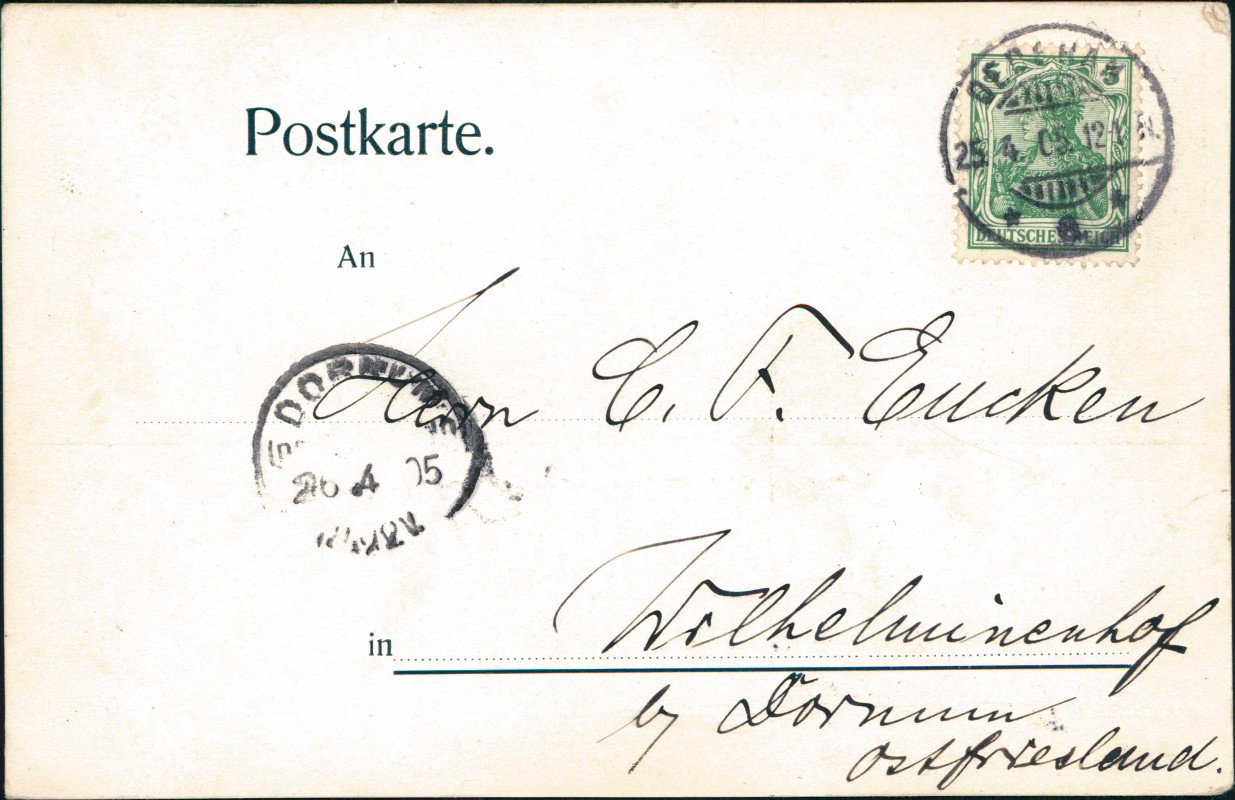 Postkarte.
5 5
25. 4. 05. 12-1 N.
DEUTSCHES REICH
An
Herrn C. F. Eucken
DORNUM
26 4 05
in
Wilhelminenhof
by Dornum
Ostfriesland.